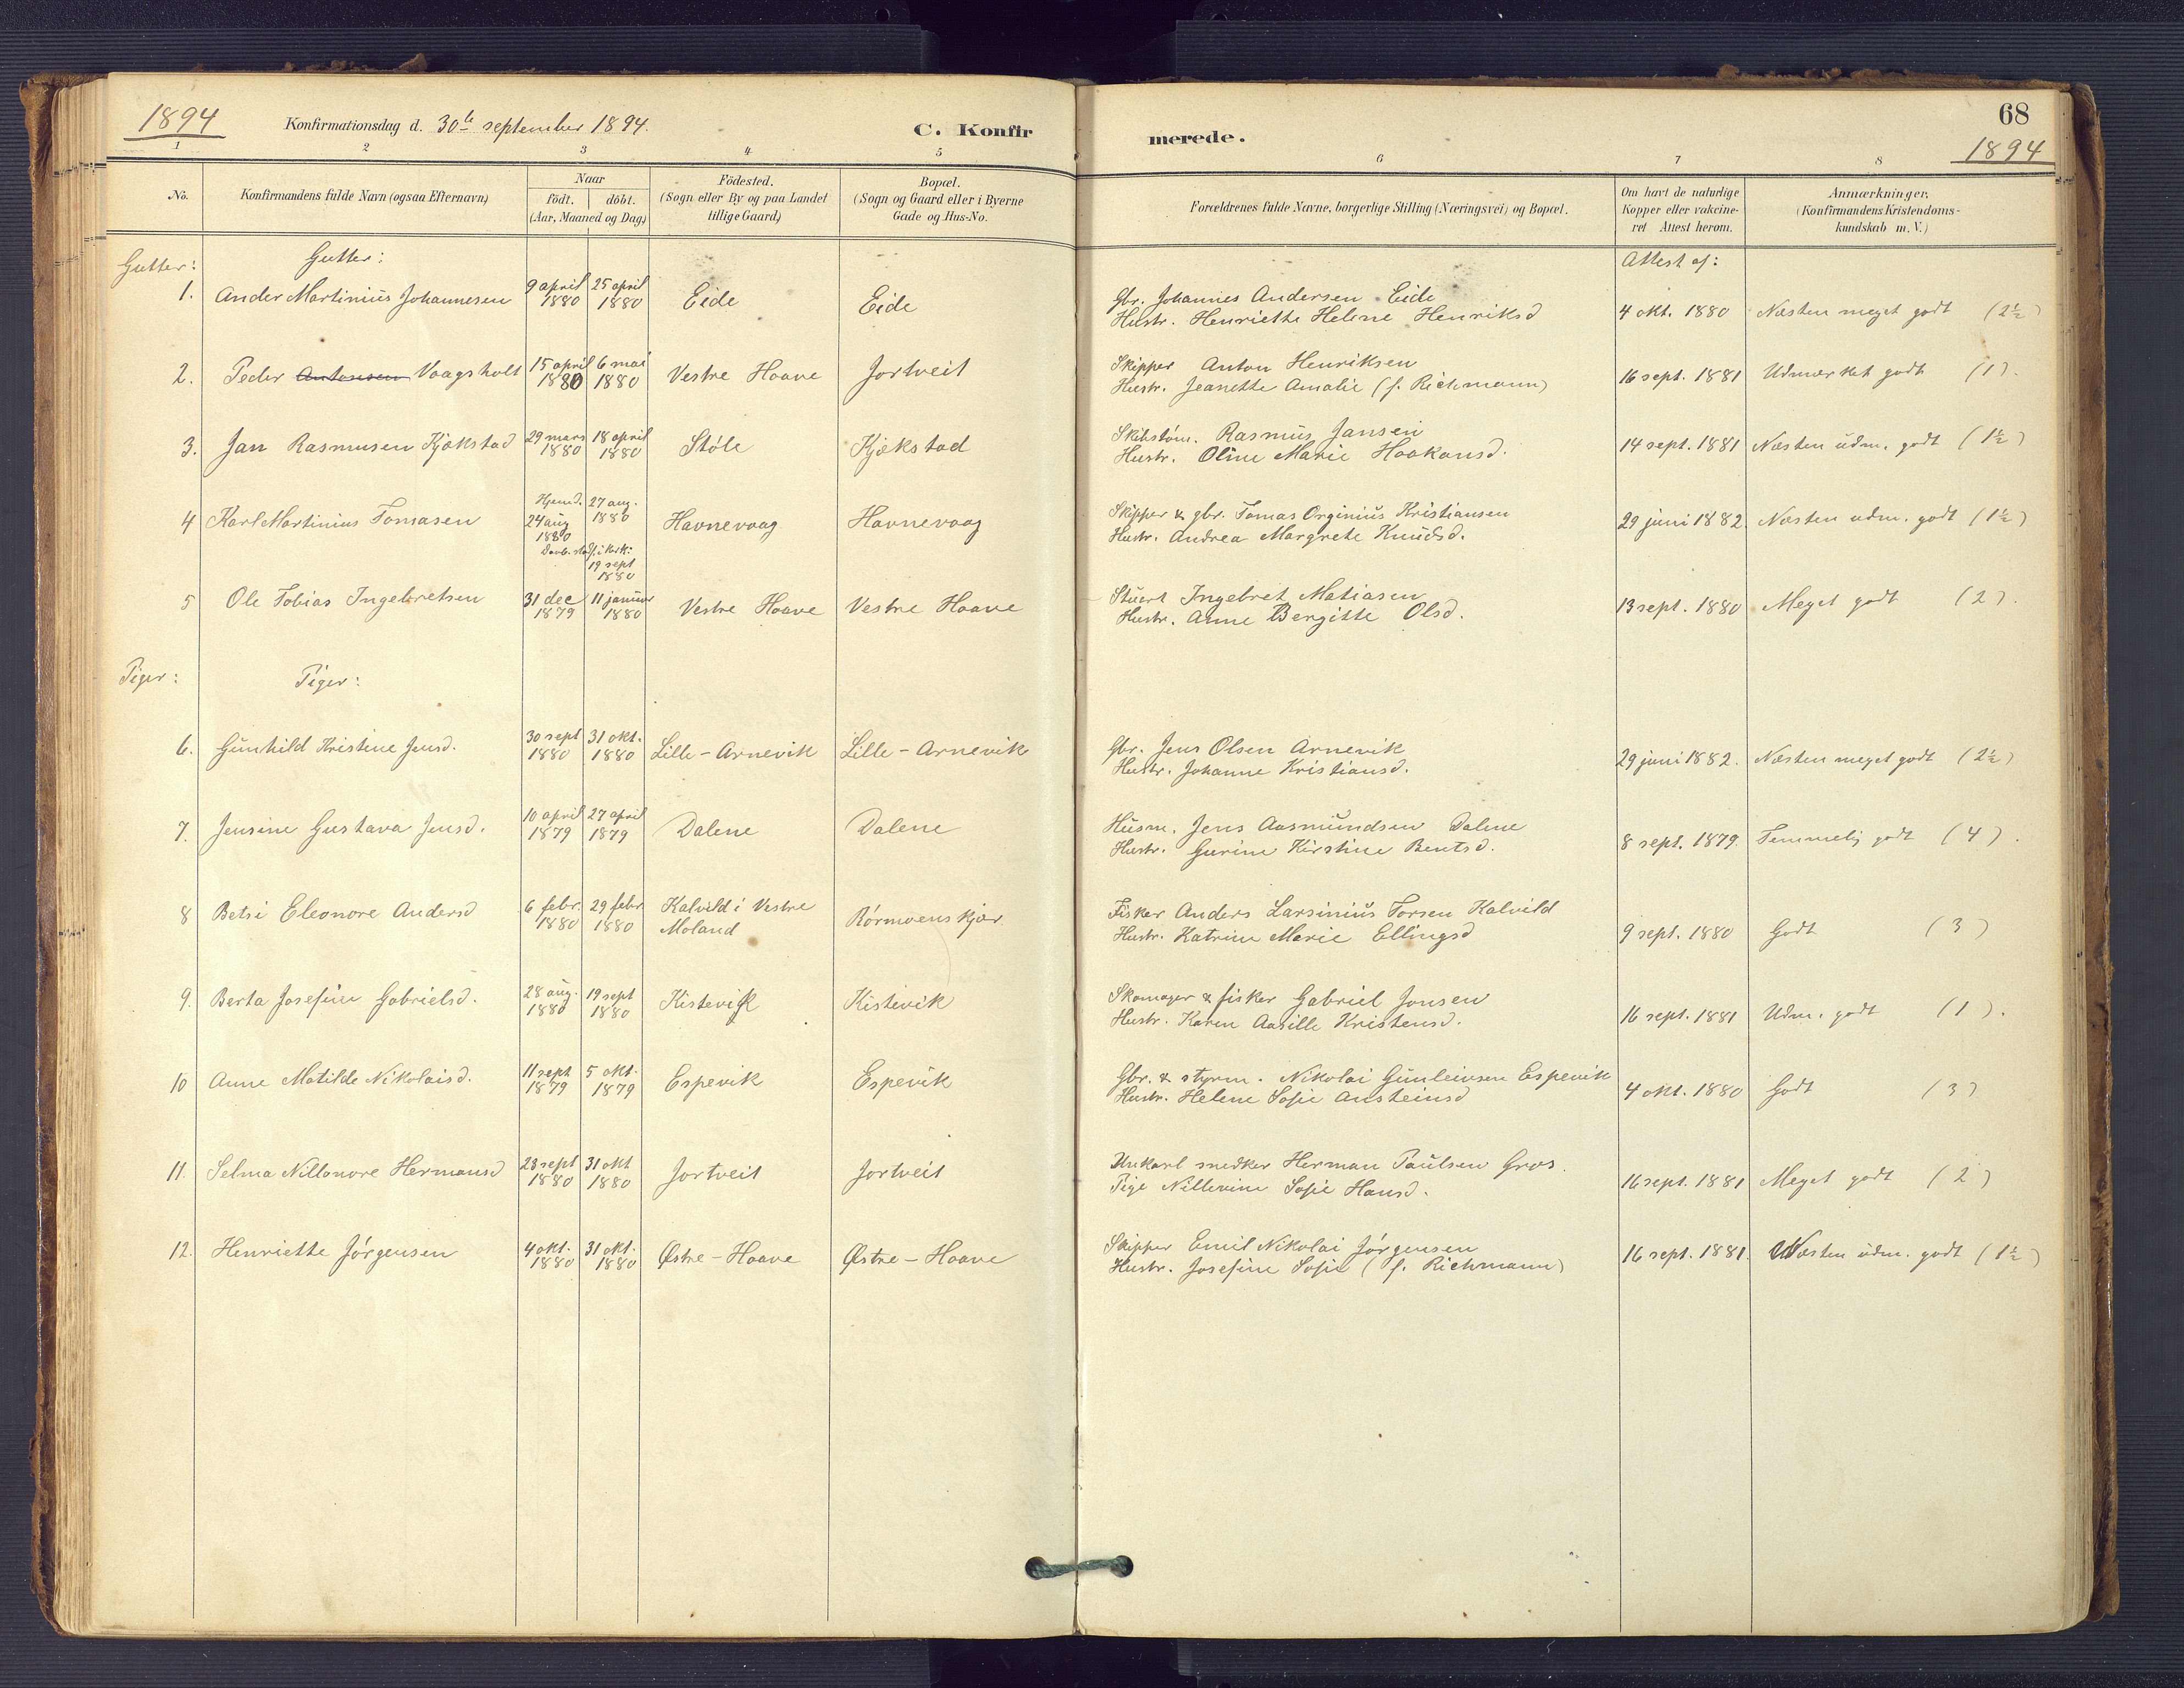 1894 Konfirmationsdag d. 30te september 1894. C. Konfirmerede. 68
1894
1 2 3 4 5 6 7 8
No. Konfirmandens fulde Navn (ogsaa Efternavn) Naar födt. döbt. (Aar, Maaned og Dag) Födested. (Sogn eller By og paa Landet tillige Gaard) Bopæl. (Sogn og Gaard eller i Byerne Gade og Hus-No. Forældrenes fulde Navne, borgerlige Stilling (Næringsvei) og Bopæl. Om havt de naturlige Kopper eller vakcineret Attest herom. Anmærkninger. (Konfirmandens Kristendomskundskab m. V.)
Gutter: Gutter: Attest af:
1. Ander Martinius Johannesen 9 april 1880 25 april 1880 Eide Eide Gbr. Johannes Andersen Eide
Hustr. Henriette Helene Henriksd 4 okt. 1880 Næsten meget godt (2½)
2. Peder Antonsen Vaagsholt 15 april 1880 6 mai 1880 Vestre Haave Jortveit Skipper Anton Henriksen
Hustr. Jeanette Amalie (f. Richmann) 16 sept. 1881 Udmærket godt (1).
3. Jan Rasmusen Kjækstad 29 mars 1880 18 april 1880 Støle Kjækstad Skibstøm. Rasmus Jansen
Hustr. Oline Marie Haakonsd. 14 sept. 1881 Næsten udm. godt (1½)
4 Karl Martinius Tomasen 24 aug 1880 Hjemd. 27 aug. 1880 Havnevaag Havnevaag Skipper & gbr. Tomas Orginius Kristiansen
Hustr. Andrea Margrete Knudsd. 29 juni 1882. Næsten udm. godt (1½)
Daab. stadf. i kirk: 19 sept 1880
5 Ole Tobias Ingebretsen 31 dec 1879 11 januar 1880 Vestre Haave Vestre Haave Stuert Ingebret Matiasen
Hustr. Anne Bergitte Olsd. 13 sept. 1880 Meget godt (2).
Piger: Piger:
6. Gunhild Kristine Jensd. 30 sept 1880 31 okt. 1880 Lille-Arnevik Lille-Arnevik Gbr. Jens Olsen Arnevik
Hustr. Johanne Kristiansd. 29 juni 1882. Næsten meget godt (2½)
7. Jensine Gustava Jensd. 10 april 1879 27 april 1879 Dalene Dalene Husm. Jens Aasmundsen Dalene
Hustr. Gurine Kirstine Bentsd. 8 sept. 1879. Temmelig godt (4).
8 Betsi Eleonore Andersd 6 febr. 1880 29 febr 1880 Kalvild i Vestre Moland Rørmoenskjær Fisker Anders Larsinius Torsen Kalvild
Hustr. Katrine Marie Ellingsd 9 sept. 1880 Godt (3)
9. Berta Josefine Gabrielsd. 28 aug. 1880 19 sept 1880 Kistevik Kistevik Skomager & fisker Gabriel Jonsen
Hustr. Karen Aasille Kristensd. 16 sept. 1881 Udm. godt (1).
10 Anne Matilde Nikolaisd. 11 sept 1879 5 okt. 1879 Espevik Espevik Gbr. & styrm. Nikolai Gunleivsen Espevik
Hustr. Helene Sofie Austeinsd 4 okt. 1880 Godt (3)
11. Selma Nillonore Hermansd 28 sept 1880 31 okt 1880 Jortveit Jortveit Unkarl snedker Herman Paulsen Gros.
Pige Nillevine Sofie Hansd. 16 sept. 1881 Meget godt (2)
12. Henriette Jørgensen 4 okt. 1880 31 okt. 1880 Østre-Haave Østre-Haave Skipper Emil Nikolai Jørgensen
Hustr. Josefine Sofie (f. Richmann) 16 sept. 1881. Næsten udm. godt (1½)